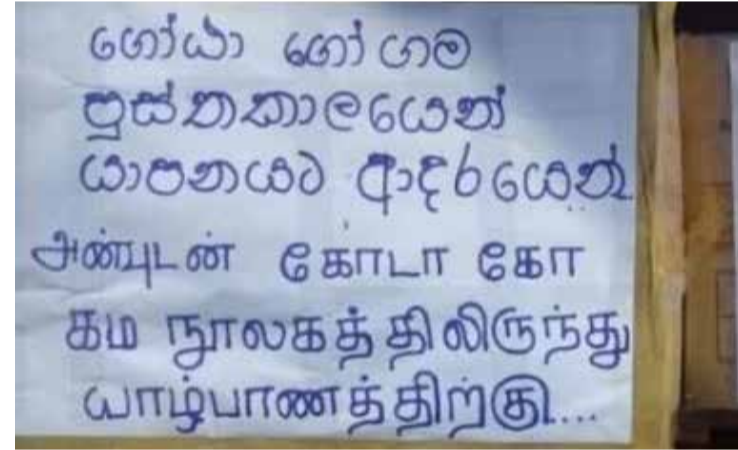 ගෝඨා ගෝ ගම
පුස්තකාලයෙන්
යාපනයට ආදරයෙන්.
அன்புடன் கோடா கோ
கம நூலகத்திலிருந்து
யாழ்பாணத்திற்கு....